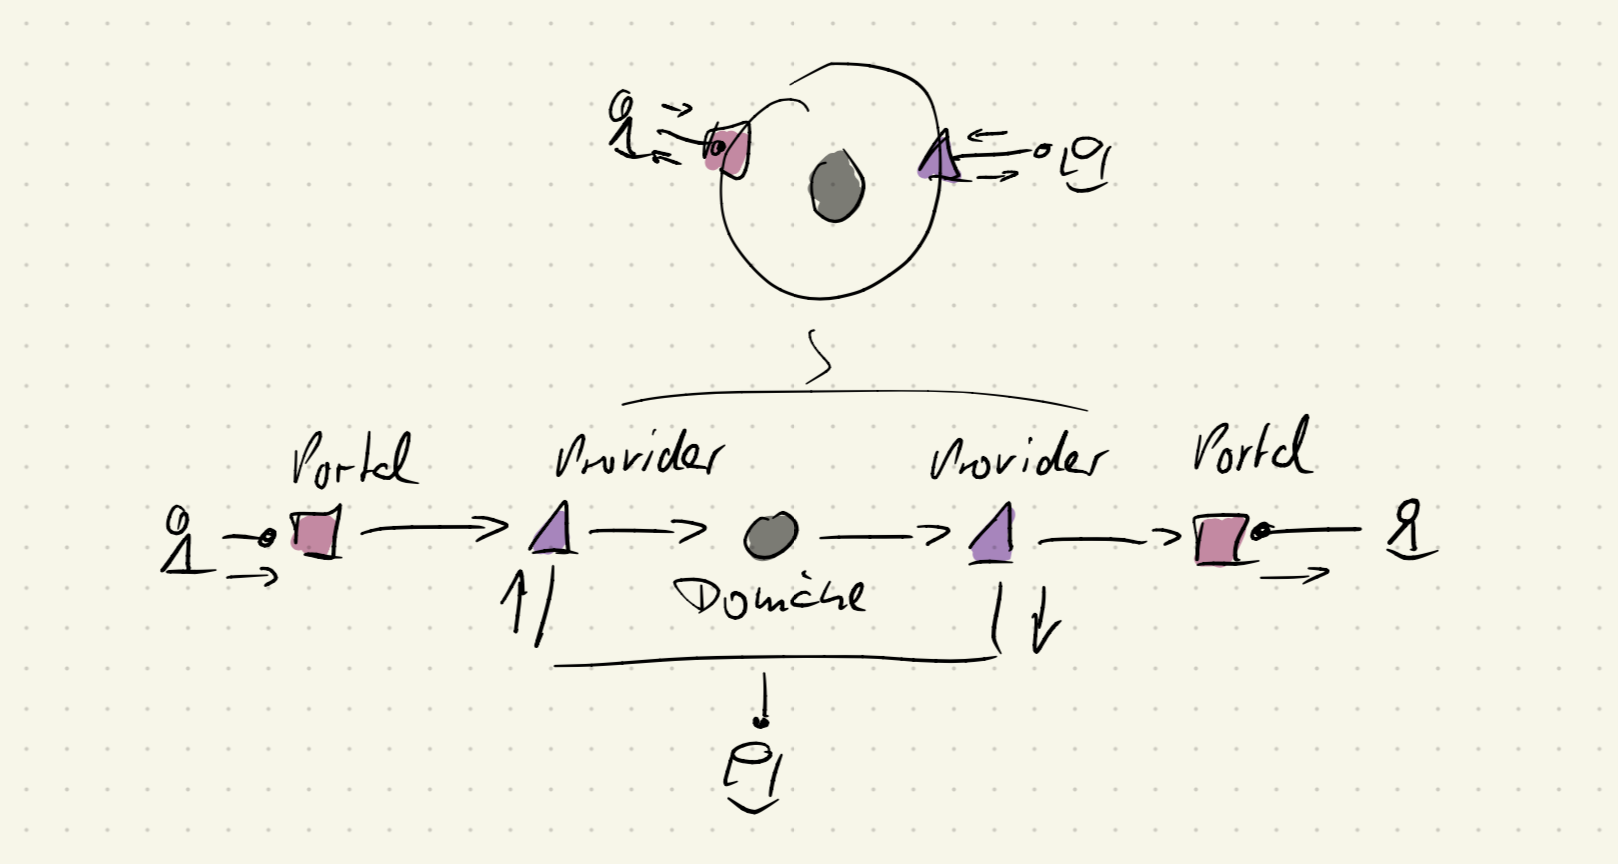 Portal
Provider
Provider
Portal
Domäne